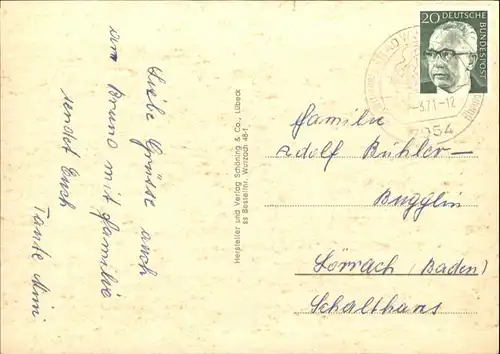 Liebe Grüsse auch
an Bruno mit Familie
sendet Euch
Tante Mini
Hersteller und Verlag Schöning & Co., Lübeck
ss Bestellnr. Wurzach 48-1
20 DEUTSCHE BUNDESPOST
BAD W
-3.71-12
7954
Familie
Adolf Bühler-
Bugglin
Lörrach (Baden)
Schalthaus